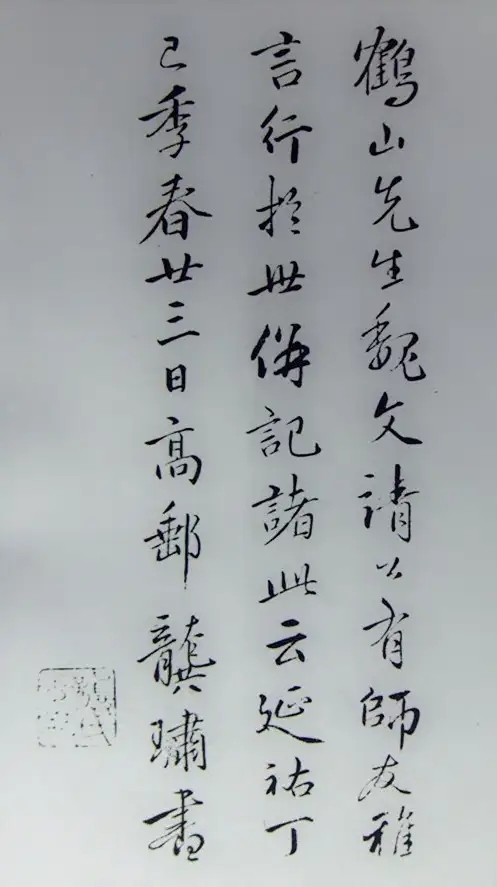 鶴山先生魏文請公有師友雅
言行於世併記諸此云延祐丁
巳季春廿三日高郵龔璛書